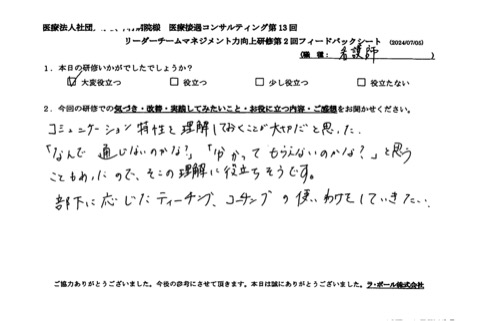 医療法人社団 病院様 医療接遇コンサルティング第13回
リーダーチームマネジメント力向上研修第2回フィードバックシート (2024/07/05)
(職 種: 看護師 )
1.本日の研修いかがでしたでしょうか?
☑ 大変役立つ □ 役立つ □ 少し役立つ □ 役立たない
2.今回の研修での気づき・改善・実践してみたいこと・お役に立つ内容・ご感想をお聞かせください。
コミュニケーション特性を理解しておくことが大切だと思った.
「なんで通じないのかな?」「分かってもらえないのかな?」と思う
こともあったので、そこの理解に役立ちそうです。
部下に応じたティーチング、コーチングの使いわけをしていきたい.
ご協力ありがとうございました。今後の参考にさせて頂きます。本日は誠にありがとうございました。ラ・ポール株式会社